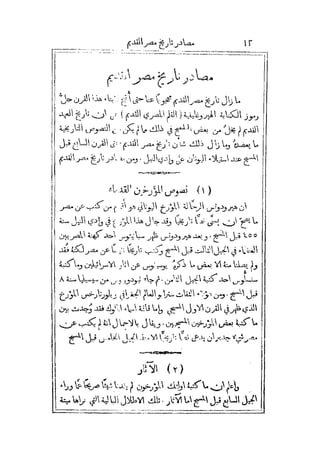 ١٢ مصادر تاريخ مصر القديم
مصادر تاريخ مصر القديم
ما زال تاريخ مصر القديم عنا حتى أبناء هذا القرن حل
رموز الكتابة الهيروغليفية (القلم المصري القديم) ان تاريخ العهد
القديم لم يخل من بعض في ذلك ما لم يكن النصوص التاريخية
ما يعضده وما زال ذلك شأن تاريخ مصر القديم القرن السابع قبل
المسيح عند استيلاء اليونان على وادي النيل. ومن تاريخ مصر القديم
(١) نصوص المؤرخين القدماء
ان هيرودوتس الرحالة المؤرخ اليوناني هو من كتب عن مصر
ما يصح ان يسمى تاريخًا وقد جال هذا المؤرخ في وادي النيل سنة
٤٥٥ قبل المسيح. وبعد هيرودوتس ظهر احد كهنة المصريين
العظماء في الجيل الثالث قبل المسيح وكتب تاريخًا عن مصر لكنه فقد
ولم يصلنا منه الا بعض ما ذكره يوسيفوس عن آثار الاسرائيليين وما كتبه
احد مؤرخي الجيل الثامن. ثم جاء ديودورس من سيسيليا سنة ٨
قبل المسيح. ومن الثقات سترابو العالم الجغرافي وبلوتارخس المؤرخ
الذي ظهر في القرن الاول المسيحي وما قاله فقد وجدت بين
ما كتبه بعض المؤرخين المسيحيين. ويقال بالاجمال انه لم يكتب عن
مصر جدير ان يدعى تاريخًا الا منذ الجيل الخامس قبل المسيح
(٢) الآثار
واعلم ان ما كتبه اولئك المؤرخون لم يفدنا شيئًا صريحًا عما وراء
الجيل السابع قبل المسيح اما الآثار. تلك الاطلال البالية التي نراها ميتة